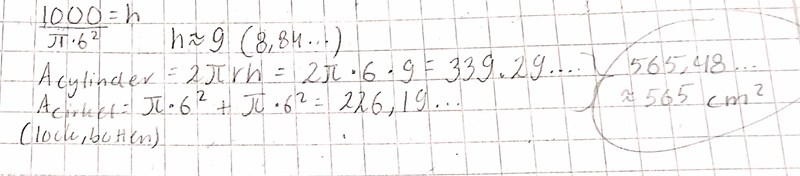 1000/π·6² = h
h≈9 (8,84...)
Acylinder = 2πrh = 2π·6·9 = 339.29....
Acirkel = π·6² + π·6² = 226,19...
(lock, botten)
565,48...
≈565 cm²